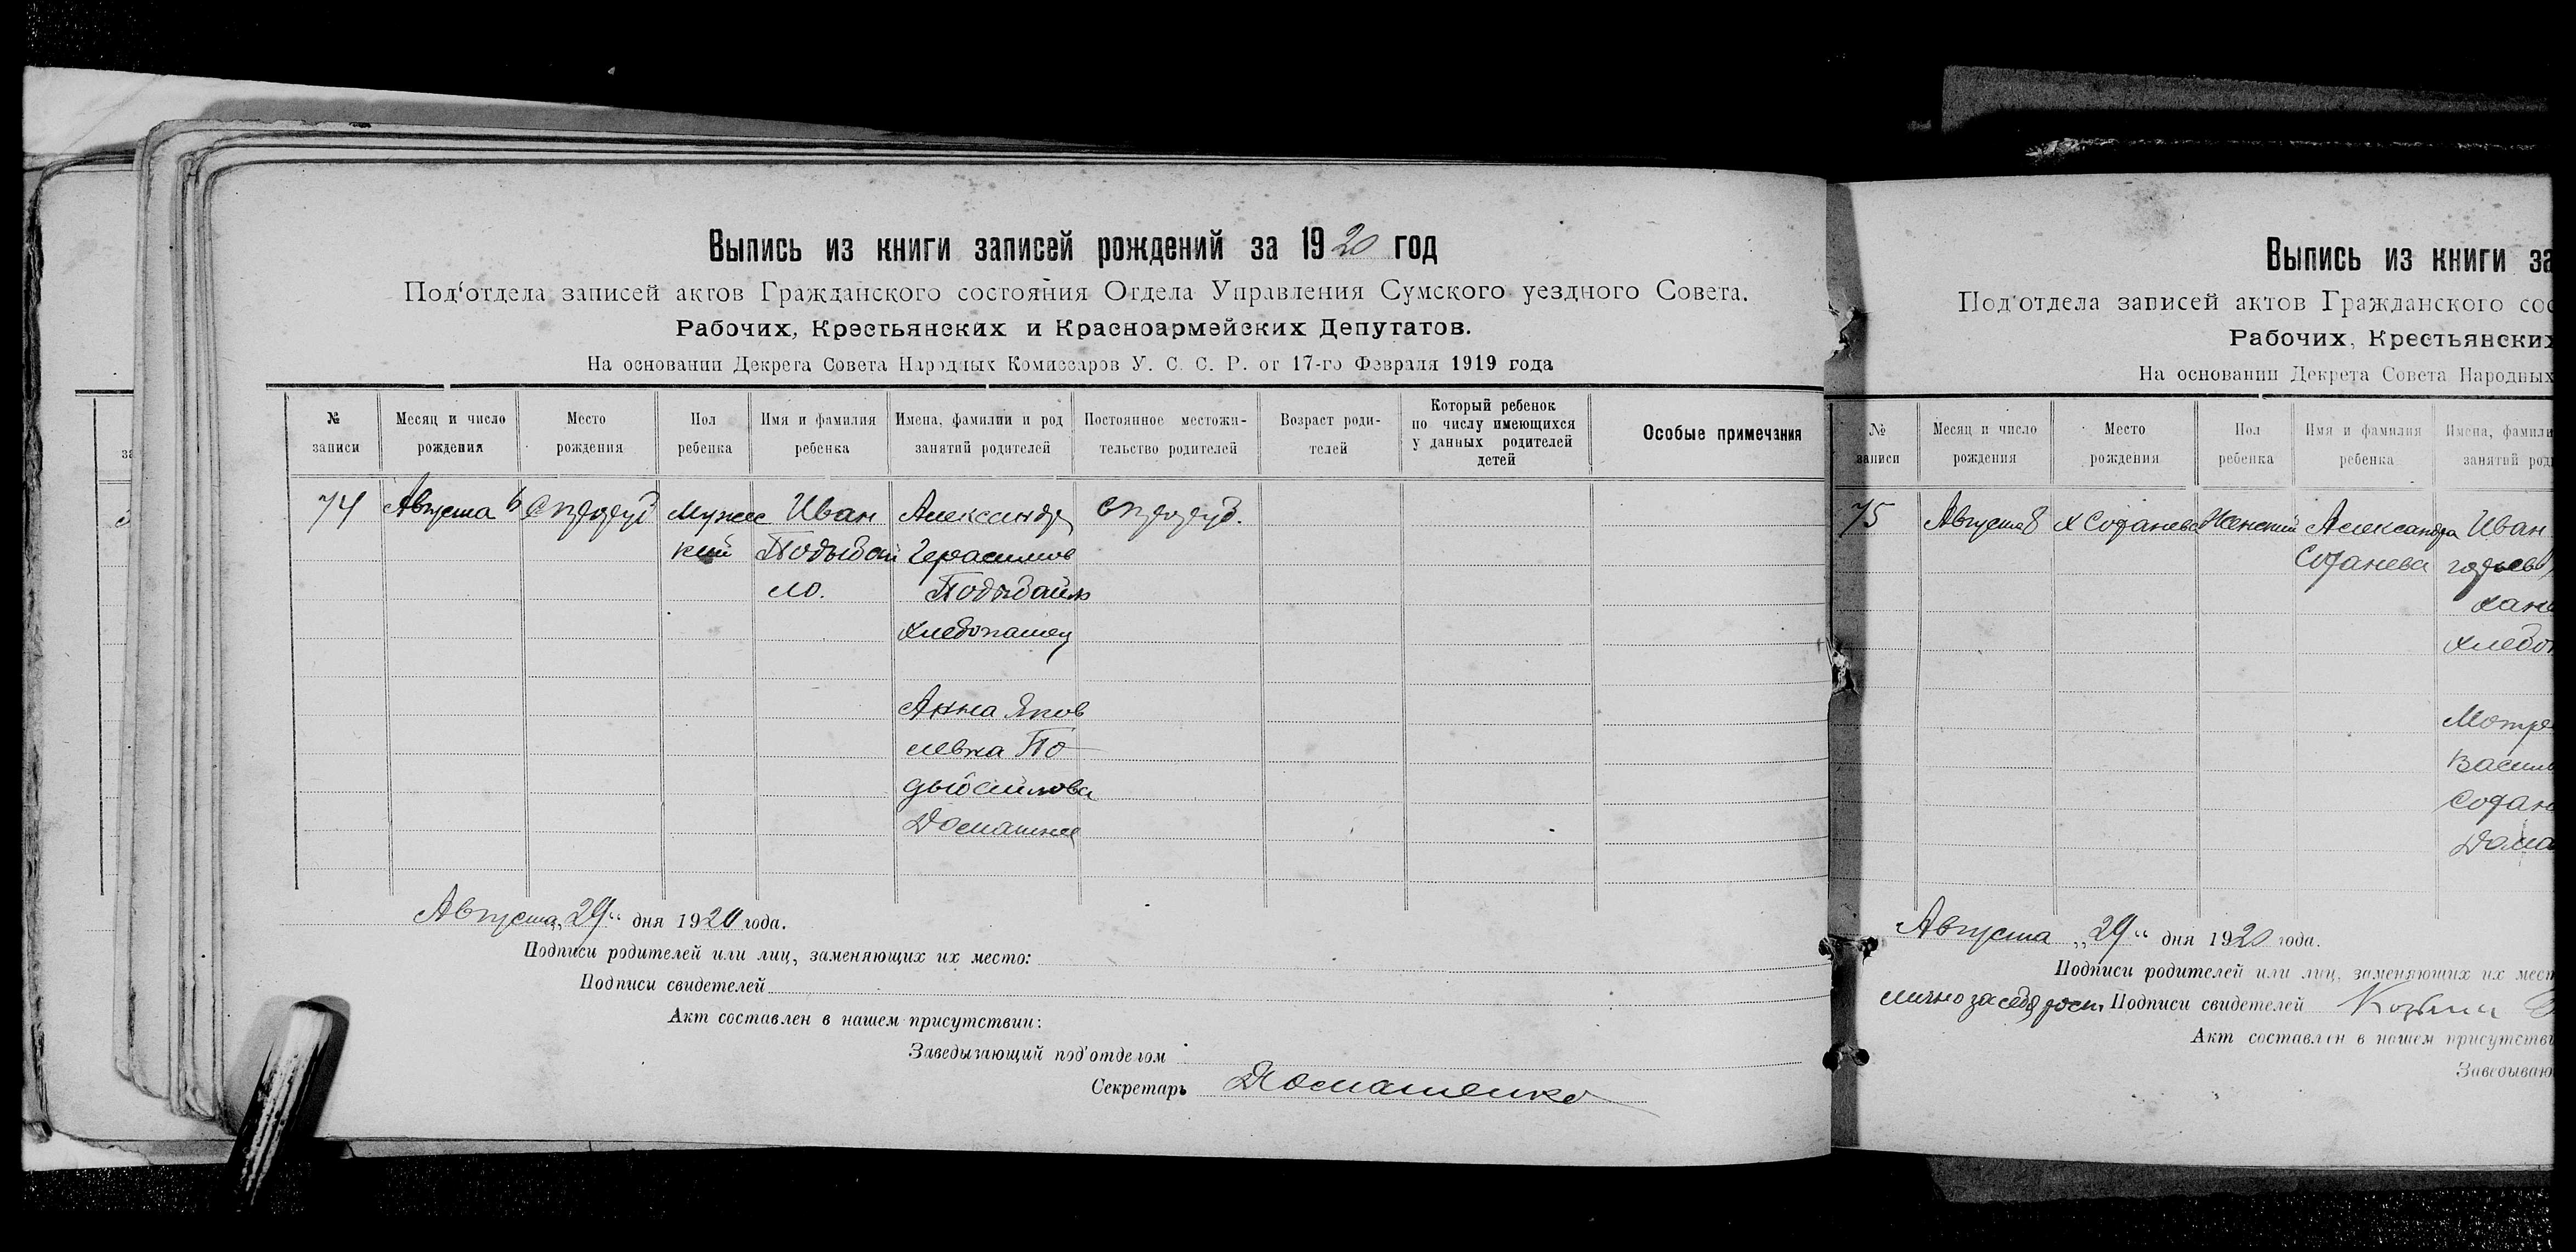 Выпись из книги записей рождений за 1920 год
Под'отдела записей актов Гражданского состояния Отдела Управления Сумского уездного Совета.
Рабочих, Крестьянских и Красноармейских Депутатов.
На основании Декрета Совета Народных Комиссаров У. С. С. Р. от 17-го Февраля 1919 года
№ записи
Месяц и число рождения
Место рождения
Пол ребенка
Имя и фамилия ребенка
Имена, фамилии и род занятий родителей
Постоянное местожительство родителей
Возраст родителей
Который ребенок по числу имеющихся у данных родителей детей
Особые примечания
74
Августа 6
Мужес
кий
Иван
Подыбай
ло.
Александр
Герасимов
Подыбайло
хлебопашец
Анна Яков
левна По
дыбайлова
Домашнее
Августа „29“ дня 1920 года.
Подписи родителей или лиц, заменяющих их место:
Подписи свидетелей
Акт составлен в нашем присутствии:
Заведывающий под'отделом
Секретарь Домашенко
Выпись из книги за
Под'отдела записей актов Гражданского сос
Рабочих, Крестьянских
На основании Декрета Совета Народных
№ записи
Месяц и число рождения
Место рождения
Пол ребенка
Имя и фамилия ребенка
Имена, фамили
занятий род
75
Августа 8
Женский
Александра
Иван
хлебоп
Мотре
Васил
Дома
Августа „29“ дня 1920 года.
Подписи родителей или лиц, заменяющих их мест
лично за себя Подписи свидетелей
Акт составлен в нашем присутстви
Заведываю